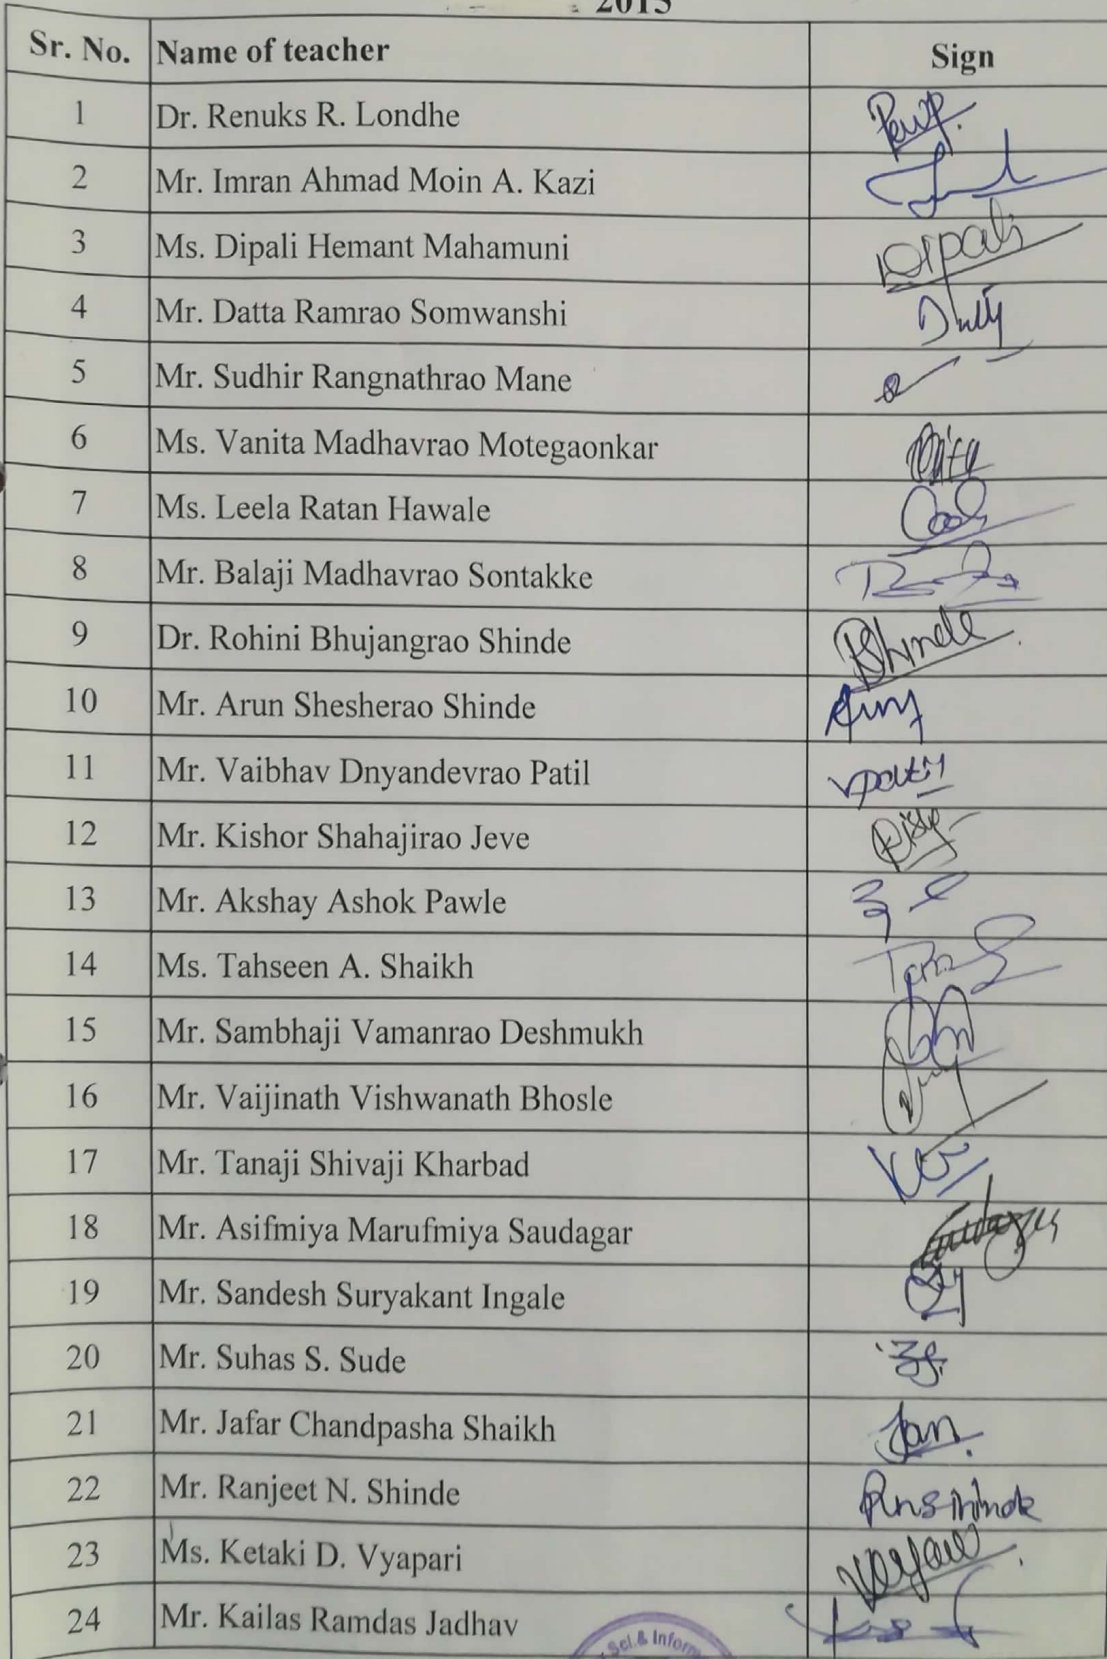 2015
Sr. No. Name of teacher Sign
1 Dr. Renuks R. Londhe
2 Mr. Imran Ahmad Moin A. Kazi
3 Ms. Dipali Hemant Mahamuni Dipali
4 Mr. Datta Ramrao Somwanshi
5 Mr. Sudhir Rangnathrao Mane
6 Ms. Vanita Madhavrao Motegaonkar
7 Ms. Leela Ratan Hawale
8 Mr. Balaji Madhavrao Sontakke
9 Dr. Rohini Bhujangrao Shinde RShinde
10 Mr. Arun Shesherao Shinde
11 Mr. Vaibhav Dnyandevrao Patil vpatil
12 Mr. Kishor Shahajirao Jeve
13 Mr. Akshay Ashok Pawle
14 Ms. Tahseen A. Shaikh
15 Mr. Sambhaji Vamanrao Deshmukh
16 Mr. Vaijinath Vishwanath Bhosle
17 Mr. Tanaji Shivaji Kharbad
18 Mr. Asifmiya Marufmiya Saudagar
19 Mr. Sandesh Suryakant Ingale
20 Mr. Suhas S. Sude
21 Mr. Jafar Chandpasha Shaikh
22 Mr. Ranjeet N. Shinde Rnshinde
23 Ms. Ketaki D. Vyapari
24 Mr. Kailas Ramdas Jadhav
Sci. & Inform